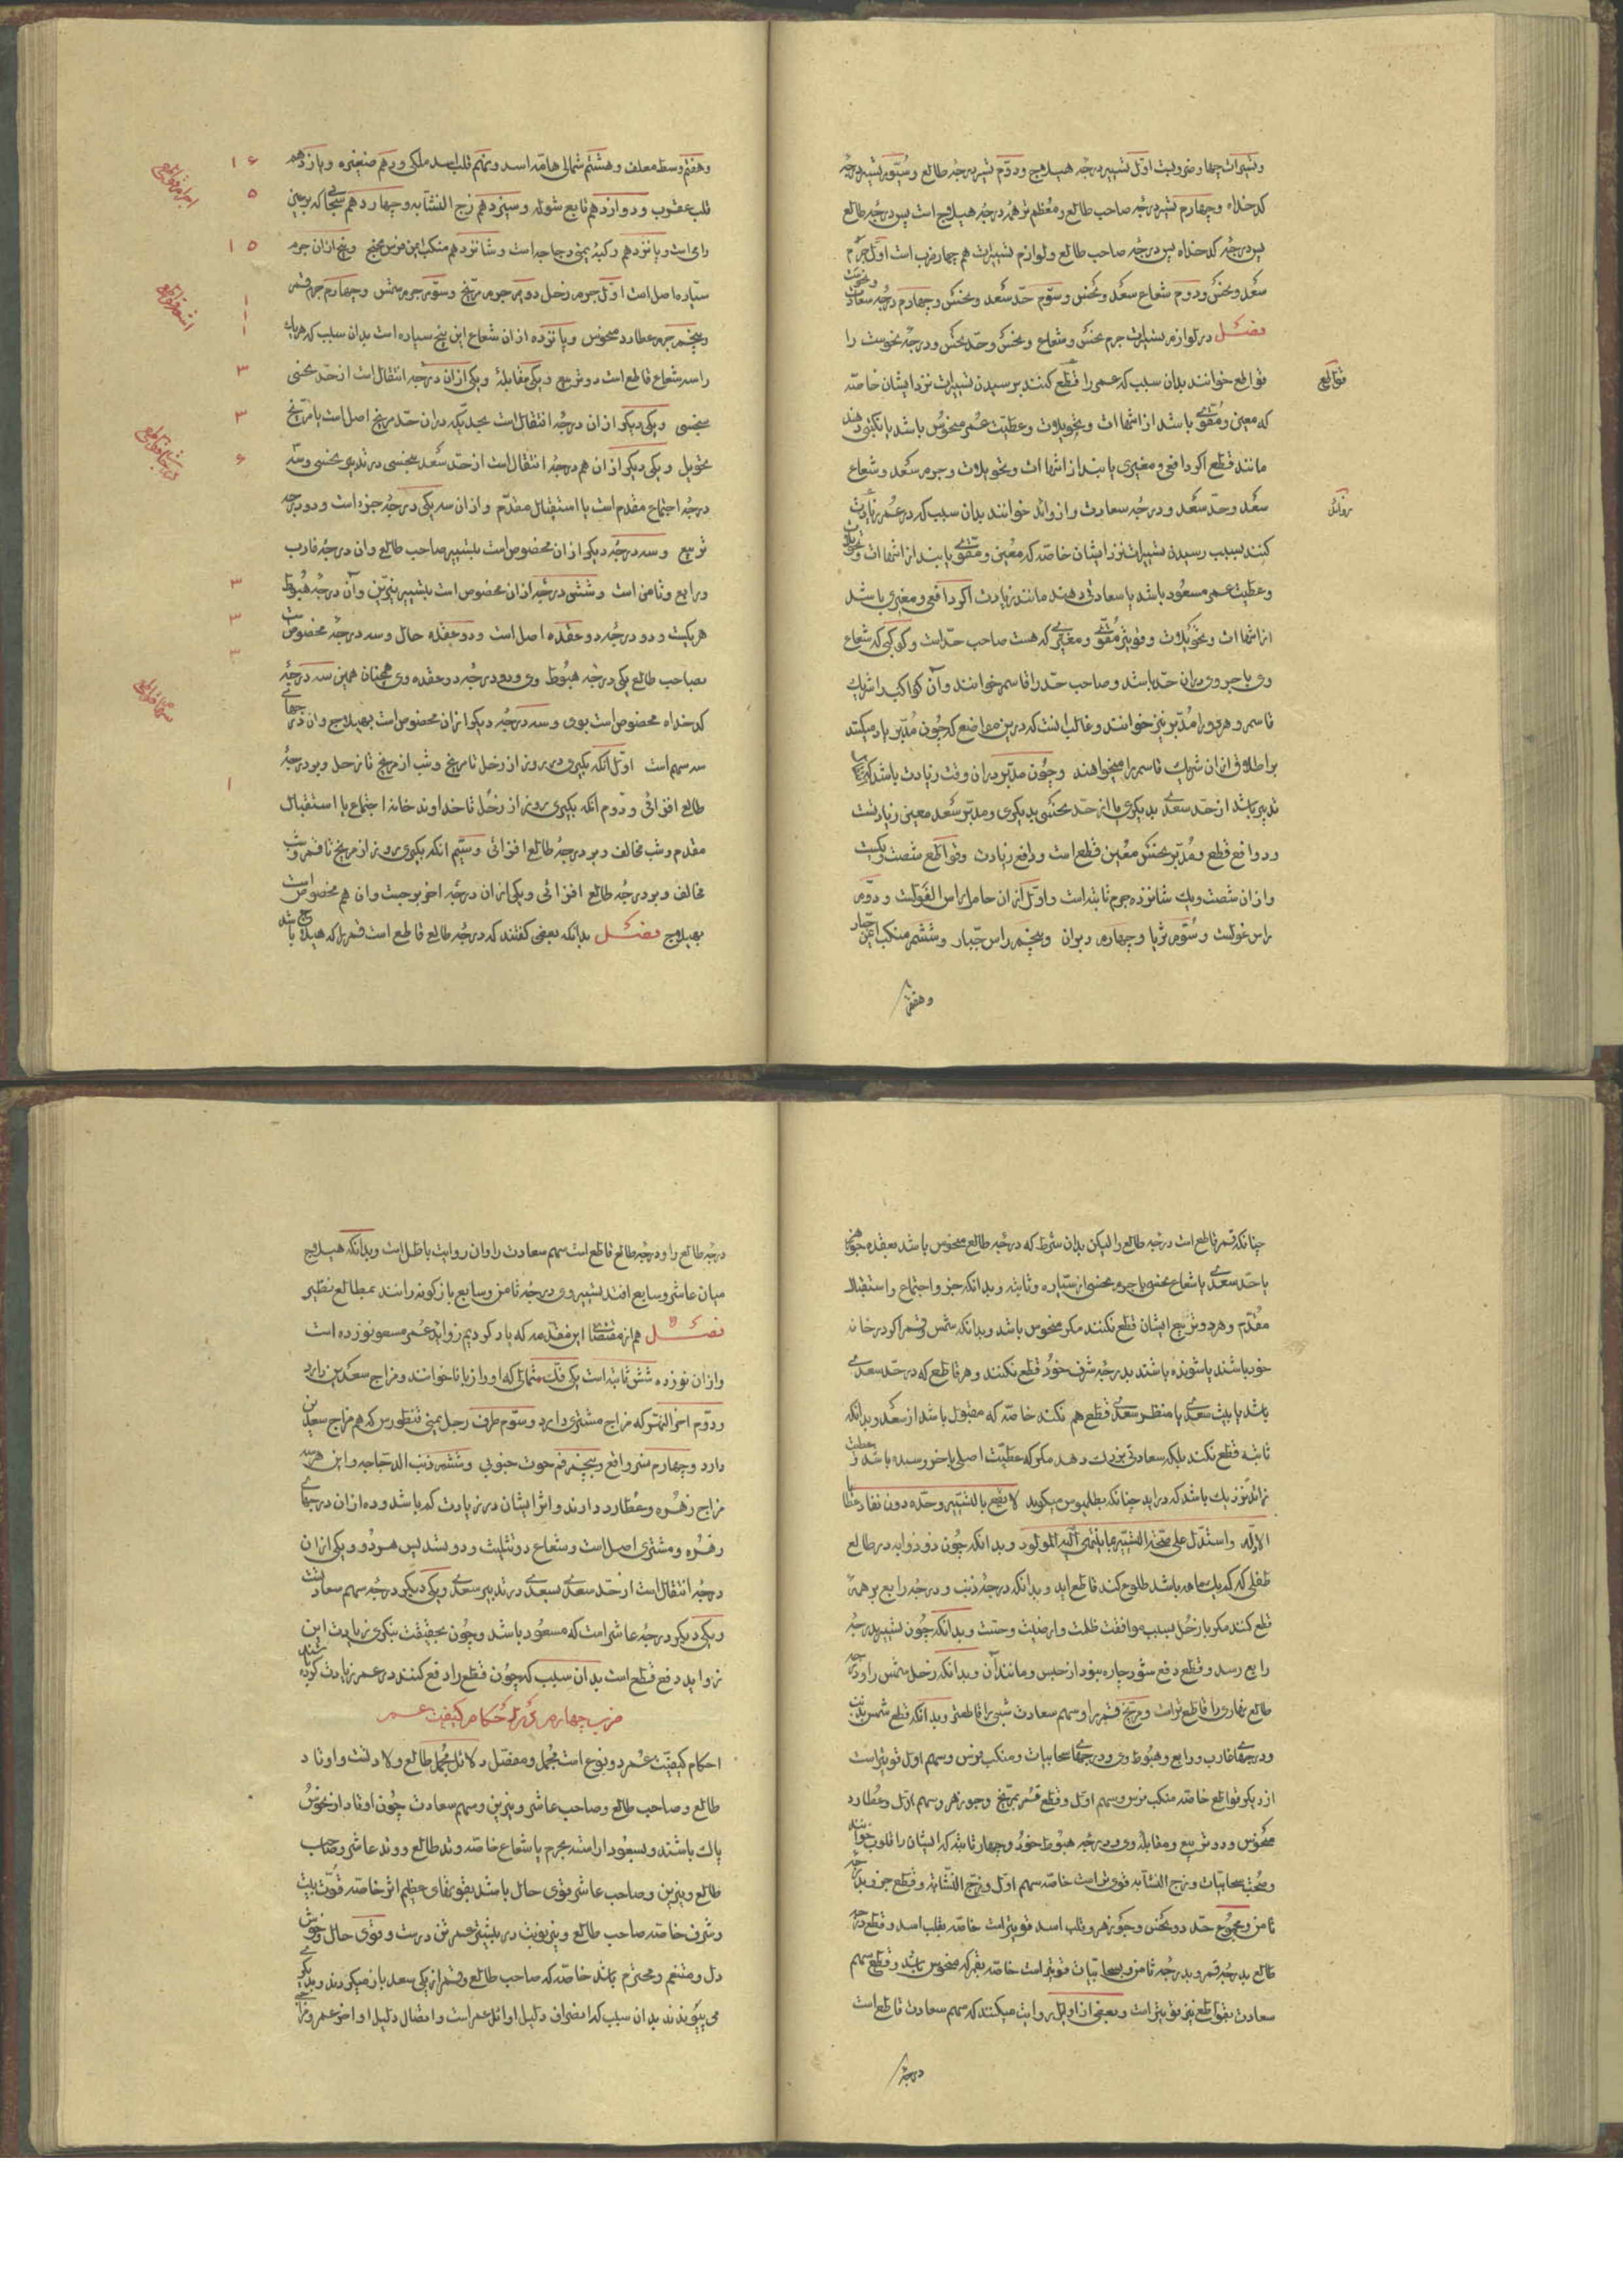 وتسیرات چهار ضربست اول تسییر درجهٔ هیلاج ودوم تسییر درجهٔ طالع وسیوم تسییر درجهٔ
کدخداه وچهارم تسییر درجهٔ صاحب طالع ومعظم تر همه درجهٔ هیلاج است پس درجهٔ طالع
پس درجهٔ کدخداه پس درجهٔ صاحب طالع ولوازم تسییرات هم چهار ضرب است اول جرم
سعد ونحس ودوم شعاع سعد ونحس وسوم حد سعد ونحس وچهارم درجهٔ سعادت ونحوست
فصل در لوازم تسییرات جرم نحس وشعاع ونحس وحد نحس ودرجهٔ نحوست را
قواطع
قواطع خوانند بدان سبب که عمر را قطع کنند برسیدن تسییرات نزد ایشان خاصه
که معین ومقوی باشد از انتهاات وتحویلات وعطیت عمر منحوس باشد یا نکبتی دهند
مانند قطع اکر دافعی ومغیری یابند از انتهاات وتحویلات وجرم سعد وشعاع
زوائد
سعد وحد سعد ودرجهٔ سعادت را زوائد خوانند بدان سبب که در عمر زیادت
کنند بسبب رسیدن تسییرات نزد ایشان خاصه که معین ومقوی یابند از انتهاات وتحویلات
وعطیت عمر مسعود باشد یا سعادتی دهند مانند زیادت اکر دافعی ومغیری باشد
از انتهاات وتحویلات وقویتر مقوی ومغیری که هست صاحب حد است وکوکبی که شعاع
وی یا جرم وی در ان حد باشد وصاحب حد را قاسم خوانند وآن کواکب را شریک
قاسم وهر دو را مدبر نیز خوانند وغالب انست که درین مواضع که چون مدبر یاد میکنند
بر اطلاق ازان شریک قاسم را میخواهند وچون مدبر در ان وقت زیادت باشد که انتقال
تدبیر باشد از حد سعدی بدیکری یا از حد نحسی بدیکری ومدبر سعد معین زیادتست
ودافع قطع ومدبر نحس معین قطع است ودافع زیادت وقواطع شصت ویکیست
وازان شصت ویک شانزده جرم ثابته است واول ازان حامل راس الغولست ودوم
راس غولست وسوم ثریا وچهارم دبران وپنجم راس جبار وششم منکب ایمن جبار
وهفتم
وهفتم وسط معلف وهشتم شمالی هامة اسد ونهم قلب اسد ملکی ودهم صغیره ویازدهم
۱۶
اجرام قواطع
قلب عقرب ودوازدهم تابع شوله وسیزدهم زج النشابه وچهاردهم سحابی که بر عین
۵
رامی است وپانزدهم رکبهٔ یمنی دجاجه است وشانزدهم منکب ایمن فرس مجنح وپنج ازان جرم
۱۵
سیاره اصل است اول جرم زحل دوم جرم مریخ وسوم جرم شمس وچهارم جرم قمر
۱
وپنجم جرم عطارد منحوس وپانزده ازان شعاع این پنج سیاره است بدان سبب که هر یک
۱
۱
را سه شعاع قاطع است دو تربیع ویکی مقابلهٔ ویکی ازان درجهٔ انتقال است از حد نحسی
۳
بنحسی ویکی دیکر ازان درجهٔ انتقال است بحدیکه در ان حد مریخ اصل است یا مریخ
۳
تحویل ویکی دیکر ازان هم درجهٔ انتقال است از حد سعد بنحسی در تدبیر نحسی وسه
۶
درجهٔ اجتماع مقدم است یا استقبال مقدم وازان سه یکی درجهٔ جزو است ودو درجه
تربیع وسه درجهٔ دیکر ازان مخصوص است بتسییر صاحب طالع وان درجهٔ غارب
ورابع وثامن است وشش درجه ازان مخصوص است بتسییر نیرین وآن درجهٔ هبوط
۳
هر یکیست ودو درجهٔ دو عقده اصل است ودو عقده حال وسه درجه مخصوص است
۳
بصاحب طالع یکی درجهٔ هبوط وی ودو درجهٔ دو عقده وی همچنان همین سه درجهٔ
۳
کدخداه مخصوص است بوی وسه درجهٔ دیکر ازان مخصوص است بهیلاج وان درجهای
سه سهم است اول انکه بکیری بروز از زحل تا مریخ وشب از مریخ تا زحل وبر درجهٔ
۱
طالع افزائی ودوم انکه بکیری بروز از زحل تا خداوند خانه اجتماع یا استقبال
مقدم وشب مخالف وبر درجهٔ طالع افزائی وسیم انکه بکیری بروز از مریخ تا قمر وشب
مخالف وبر درجهٔ طالع افزائی ویکی ازان درجهٔ اخر برجست وان هم مخصوص است
بهیلاج فصل بدانکه بعضی کفتند که درجهٔ طالع قاطع است قمر را که هیلاج باشد
چنانکه قمر قاطع است درجهٔ طالع را لیکن بدان شرط که درجهٔ طالع منحوس باشد بعقده جوزهر
یا حد سعدی یا شعاع نحس یا جرم نحسی از سیاره وثابته وبدانکه جزو اجتماع واستقبال
مقدم وهر دو تربیع ایشان قطع نکنند مکر منحوس باشد وبدانکه شمس وقمر اکر در خانه
خود باشند یا شونده باشند بدرجهٔ شرف خود قطع نکنند وهر قاطع که در حد سعدی
باشد یا بیت سعدی یا منظر سعدی قطع هم نکند خاصه که مقبول باشد از سعد وبدانکه
ثابته قطع نکند بلکه سعادتی بزرک دهد مکر که عطیت اصلی باخر رسیده باشد وبعطیت
زائد نزدیک باشد که دراید چنانکه بطلمیوس میکوید لا یقنع بالتسییر وحده دون نفاد عطایا
الادله واستدل علی صحة التسییر بما ینتهی الیه المولود وبدانکه چون ذو ذوابه در طالع
طفلی که کم یک ساله باشد طلوع کند قاطع اید وبدانکه درجهٔ ذنب ودرجهٔ رابع بر همه
قطع کنند مکر با زحل بسبب موافقت ظلمت وارضیت وحست وبدانکه چون تسییر بدرجهٔ
رابع رسد وقطع دفع شود چاره نبود از حبس ومانند آن وبدانکه زحل شمس را ودرجه
طالع نهاری را قاطع تراست ومریخ قمر را وسهم سعادت شبی را قاطعتر وبدانکه قطع شمس بذنب
ودرجهای غارب ورابع وهبوط وی ودرجهای سحابیات ومنکب فرس وسهم اول قویتراست
از دیکر قواطع خاصه منکب فرس وسهم اول وقطع قمر بمریخ وجوزهر وسهم اول وعطارد
منحوس ودو تربیع ومقابلهٔ وی ودرجهٔ هبوط خود وچهار ثابته که ایشان را قلوب خوانند
وسحابیات وزج النشابه قوی تراست خاصه سهم اول وزج النشابه وقطع جزو بدرجه
ثامن ومجموع حد دو نحس وجوزهر وقلب اسد قویتراست خاصه بقلب اسد وقطع درجه
طالع بدرجهٔ قمر وبدرجهٔ ثامن وسحابیات قویتراست خاصه بقمر که منحوس باشد وقطع سهم
سعادت بقواطع نیرین قویتراست وبعضی از اوایل روایت میکنند که سهم سعادت قاطع است
درجهٔ
درجهٔ طالع را ودرجهٔ طالع قاطع است سهم سعادت را وان روایت باطل است وبدانکه هیلاج
میان عاشر وسابع افتد تسییر وی درجهٔ ثامن وسابع بازکونه رانند بمطالع نظیر
فصل هم از مقتضا این مقدمه که یاد کردیم زواید عمر مسعود نوزده است
وازان نوزده شش ثابته است یکی فلک متمایل که او را زبانا خوانند ومزاج سعدین دارد
ودوم اخر النهر که مزاج مشتری دارد وسوم طرف رجل یمنی قنطورس که هم مزاج سعدین
دارد وچهارم نسر واقع وپنجم فم حوت جنوبی وششم ذنب الدجاجه واین هر سه
مزاج زهره وعطارد دارند واثر ایشان در زیادت کم باشد وده ازان درجهای
زهره ومشتری اصل است وشعاع دو تثلیث ودو تسدیس هر دو ویکی ازان
درجهٔ انتقال است از حد سعدی بسعدی در تدبیر سعدی ویکی دیکر درجهٔ سهم سعادتست
ویکی دیکر درجهٔ عاشر است که مسعود باشد وچون بحقیقت بنکری زیادت این
زواید دفع قطع است بدان سبب که چون قطع را دفع کنند در عمر زیادت کرده باشند
ضرب چهارم در احکام کیفیت عمر
احکام کیفیت عمر دو نوع است مجمل ومفصل دلائل مجمل طالع ولادتست واوتاد
طالع وصاحب طالع وصاحب عاشر ونیرین وسهم سعادت چون اوتاد از نحوس
پاک باشند وبسعود اراسته بجرم یا شعاع خاصه وتد طالع ووتد عاشر وصاحب
طالع ونیرین وصاحب عاشر قوی حال باشد بقوتهای عظیم اثر خاصه قوت بیت
وشرف خاصه صاحب طالع ونیر نوبت در بیشتر عمر تن درست وقوی حال وخوش
دل ومتنعم ومحترم باشد خاصه که صاحب طالع وقمر از یکی سعد باز میکردند وبدیکری
می پیوندند بدان سبب که انصراف دلیل اوائل عمر است واتصال دلیل اواخر عمر